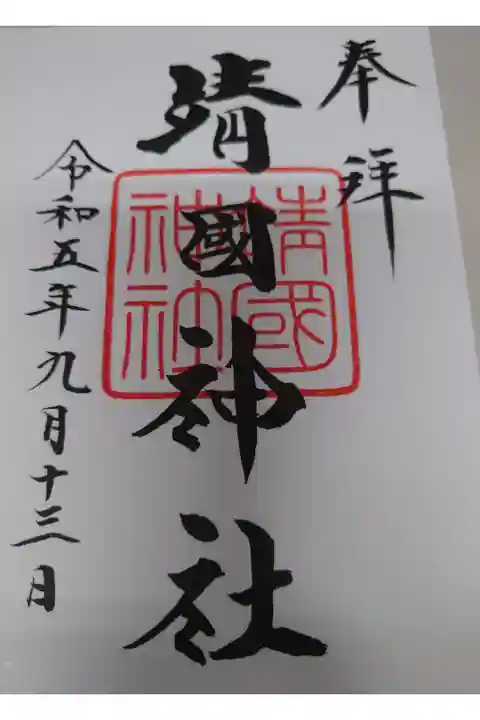 奉拝
靖國神社
靖國
神社
令和五年九月十三日